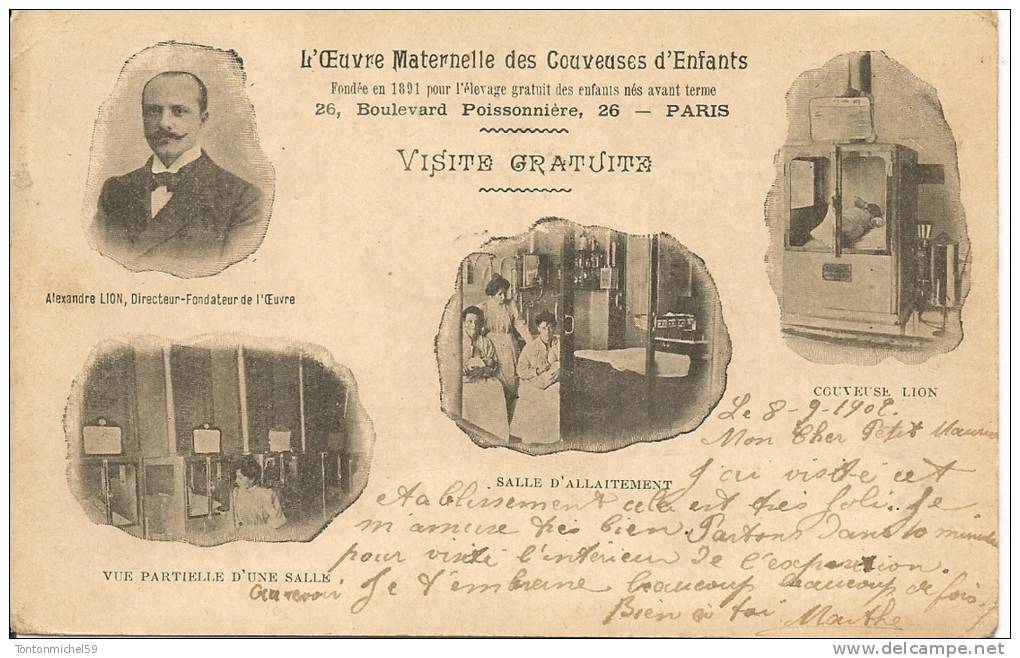 L'Œuvre Maternelle des Couveuses d'Enfants
Fondée en 1891 pour l'élevage gratuit des enfants nés avant terme
26, Boulevard Poissonnière, 26 — PARIS
VISITE GRATUITE
Alexandre LION, Directeur-Fondateur de l'Œuvre
COUVEUSE LION
SALLE D'ALLAITEMENT
VUE PARTIELLE D'UNE SALLE
Le 8-9-1902.
Mon Cher Petit Maurice
J'ai visité cet
etablissement cela est très joli. Je
m'amuse très bien. Partons dans 10 minutes
pour visité l'intérieur de l'exposition.
Au revoir Je t'embrasse beaucoup beaucoup de fois
Bien à toi Marthe
Tontonmichel59
delcampe.net